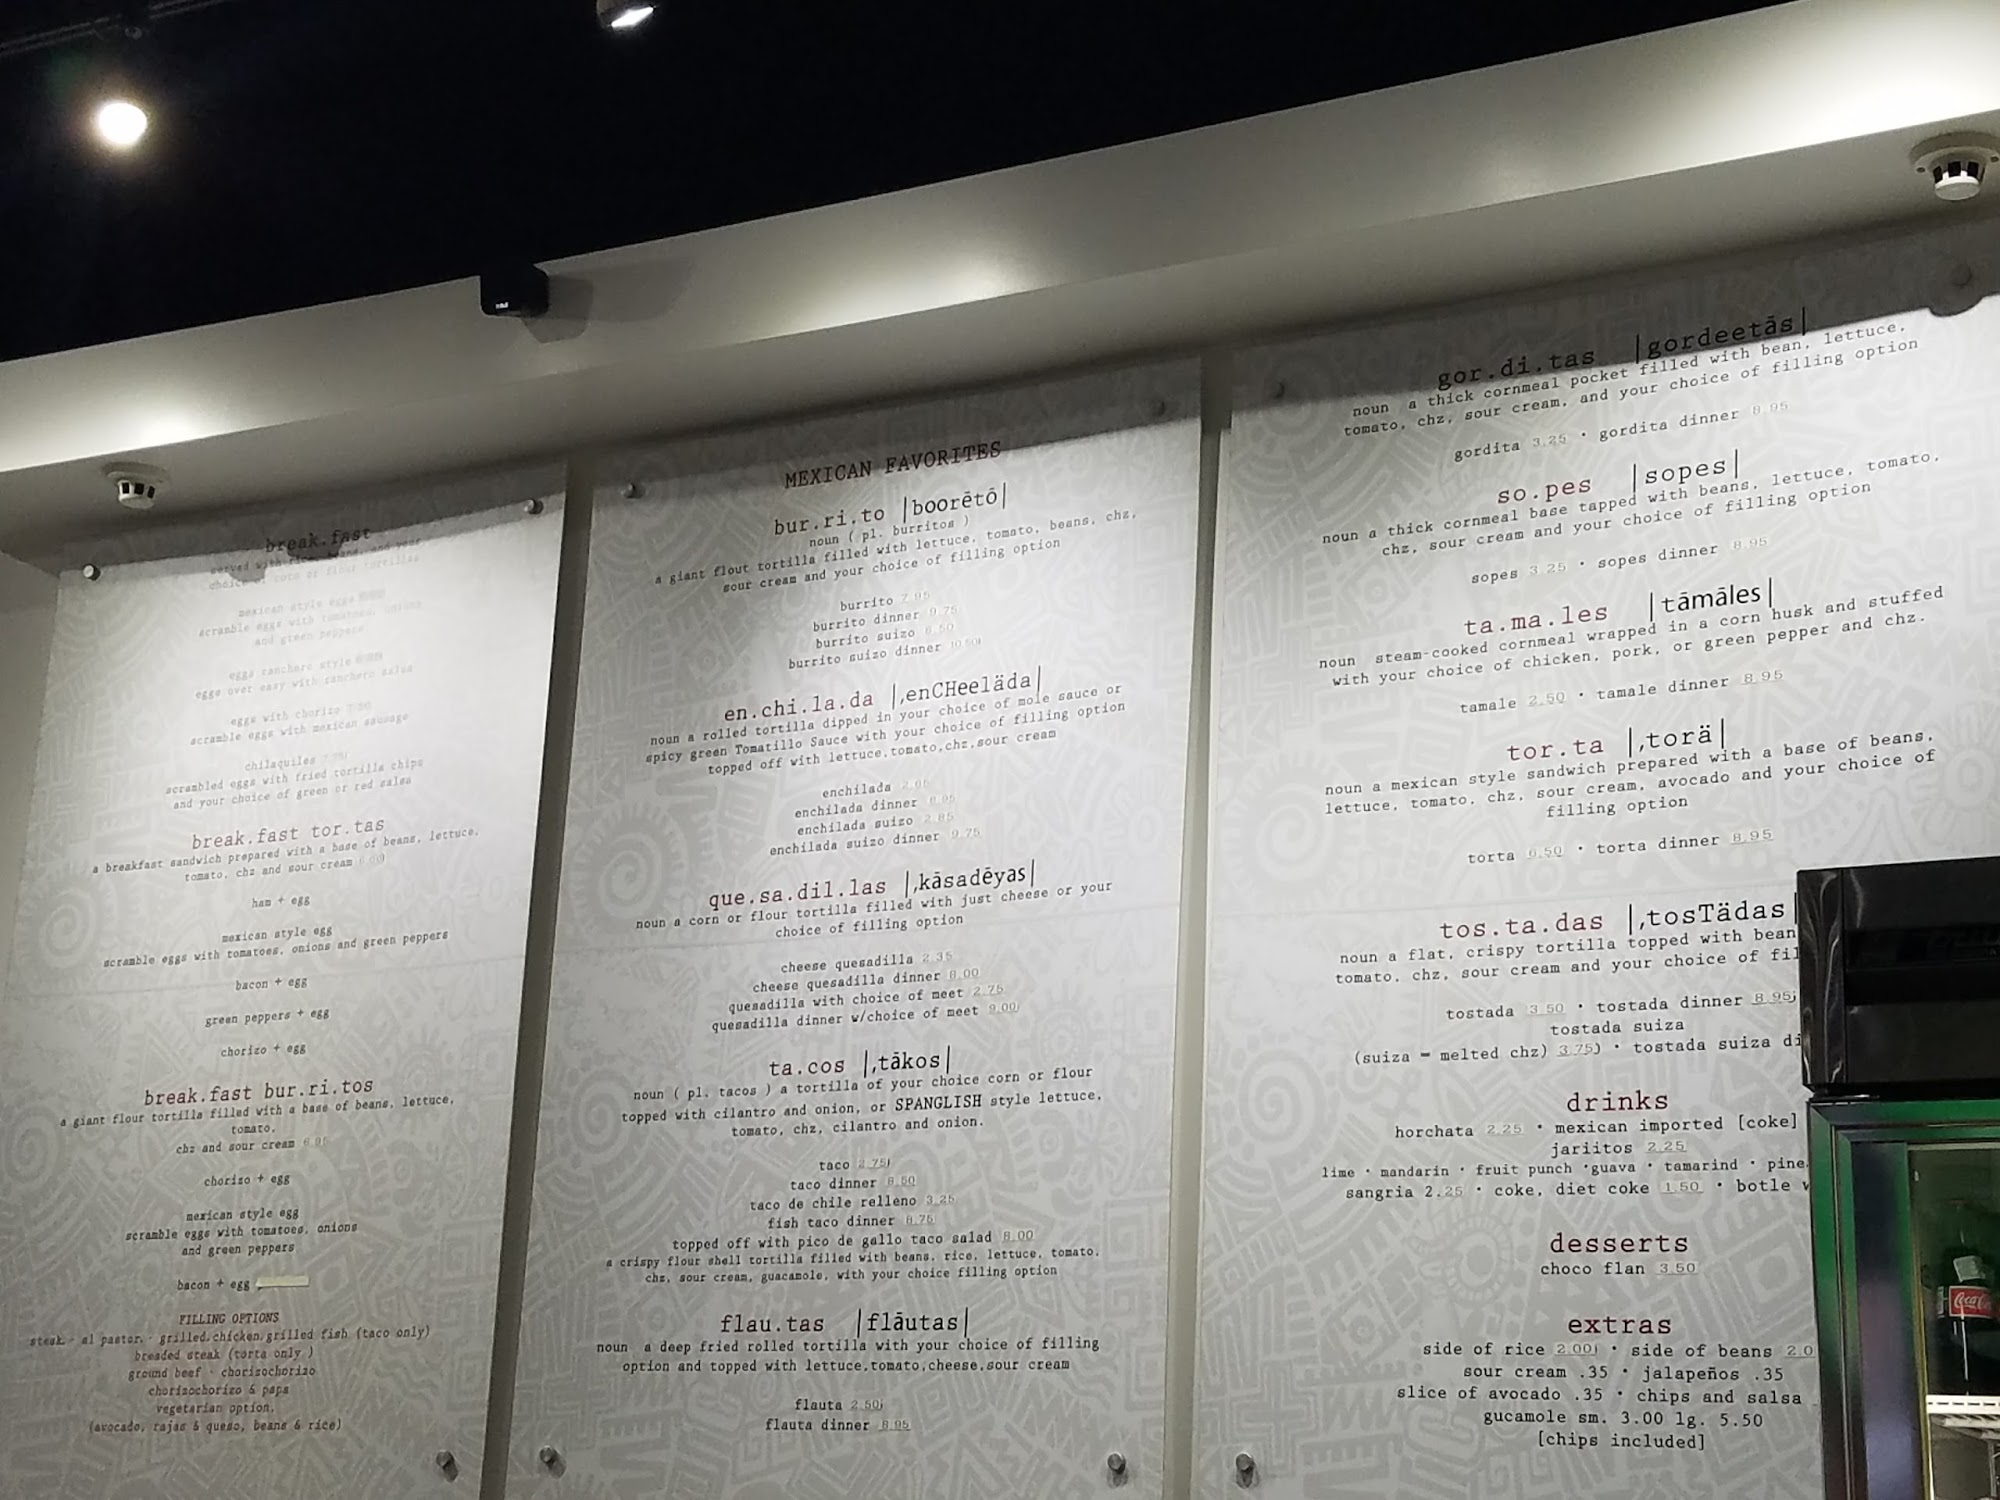 break.fast
served with rice, beans, and your
choice of corn or flour tortillas
mexican style eggs
scramble eggs with tomatoes, onions
and green peppers
eggs ranchero style
eggs over easy with ranchero salsa
eggs with chorizo 7.50
scramble eggs with mexican sausage
chilaquiles
scrambled eggs with fried tortilla chips
and your choice of green or red salsa
break.fast tor.tas
a breakfast sandwich prepared with a base of beans, lettuce,
tomato, chz and sour cream
ham + egg
mexican style egg
scramble eggs with tomatoes, onions and green peppers
bacon + egg
green peppers + egg
chorizo + egg
break.fast bur.ri.tos
a giant flour tortilla filled with a base of beans, lettuce,
tomato,
chz and sour cream 6.95
chorizo + egg
mexican style egg
scramble eggs with tomatoes, onions
and green peppers
bacon + egg
FILLING OPTIONS
steak · al pastor · grilled.chicken.grilled fish (taco only)
breaded steak (torta only )
ground beef · chorizochorizo
chorizochorizo & papa
vegetarian option.
(avocado, rajas & queso, beans & rice)
MEXICAN FAVORITES
bur.ri.to |boorētō|
noun ( pl. burritos )
a giant flout tortilla filled with lettuce, tomato, beans, chz,
sour cream and your choice of filling option
burrito 7.95
burrito dinner 9.75
burrito suizo 8.50
burrito suizo dinner 10.50
en.chi.la.da |,enCHeeläda|
noun a rolled tortilla dipped in your choice of mole sauce or
spicy green Tomatillo Sauce with your choice of filling option
topped off with lettuce,tomato,chz,sour cream
enchilada
enchilada dinner 8.95
enchilada suizo 2.85
enchilada suizo dinner 9.75
que.sa.dil.las |,kāsadēyas|
noun a corn or flour tortilla filled with just cheese or your
choice of filling option
cheese quesadilla 2.35
cheese quesadilla dinner 8.00
quesadilla with choice of meet 2.75
quesadilla dinner w/choice of meet 9.00
ta.cos |,tākos|
noun ( pl. tacos ) a tortilla of your choice corn or flour
topped with cilantro and onion, or SPANGLISH style lettuce,
tomato, chz, cilantro and onion.
taco 2.75
taco dinner 8.50
taco de chile relleno 3.25
fish taco dinner 8.75
topped off with pico de gallo taco salad 8.00
a crispy flour shell tortilla filled with beans, rice, lettuce, tomato,
chz, sour cream, guacamole, with your choice filling option
flau.tas |flāutas|
noun a deep fried rolled tortilla with your choice of filling
option and topped with lettuce,tomato,cheese,sour cream
flauta 2.50
flauta dinner 8.95
gor.di.tas |gordeetās|
noun a thick cornmeal pocket filled with bean, lettuce,
tomato, chz, sour cream, and your choice of filling option
gordita 3.25 · gordita dinner 8.95
so.pes |sopes|
noun a thick cornmeal base tapped with beans, lettuce, tomato,
chz, sour cream and your choice of filling option
sopes 3.25 · sopes dinner 8.95
ta.ma.les |tāmāles|
noun steam-cooked cornmeal wrapped in a corn husk and stuffed
with your choice of chicken, pork, or green pepper and chz.
tamale 2.50 · tamale dinner 8.95
tor.ta |,torä|
noun a mexican style sandwich prepared with a base of beans,
lettuce, tomato, chz, sour cream, avocado and your choice of
filling option
torta 6.50 · torta dinner 8.95
tos.ta.das |,tosTädas|
noun a flat, crispy tortilla topped with bean
tomato, chz, sour cream and your choice of fil
tostada 3.50 · tostada dinner 8.95
tostada suiza
(suiza = melted chz) 3.75) · tostada suiza di
drinks
horchata 2.25 · mexican imported [coke]
jariitos 2.25
lime · mandarin · fruit punch ·guava · tamarind · pine
sangria 2.25 · coke, diet coke 1.50 · botle w
desserts
choco flan 3.50
extras
side of rice 2.00 · side of beans 2.0
sour cream .35 · jalapeños .35
slice of avocado .35 · chips and salsa
gucamole sm. 3.00 lg. 5.50
[chips included]
Coca-Cola